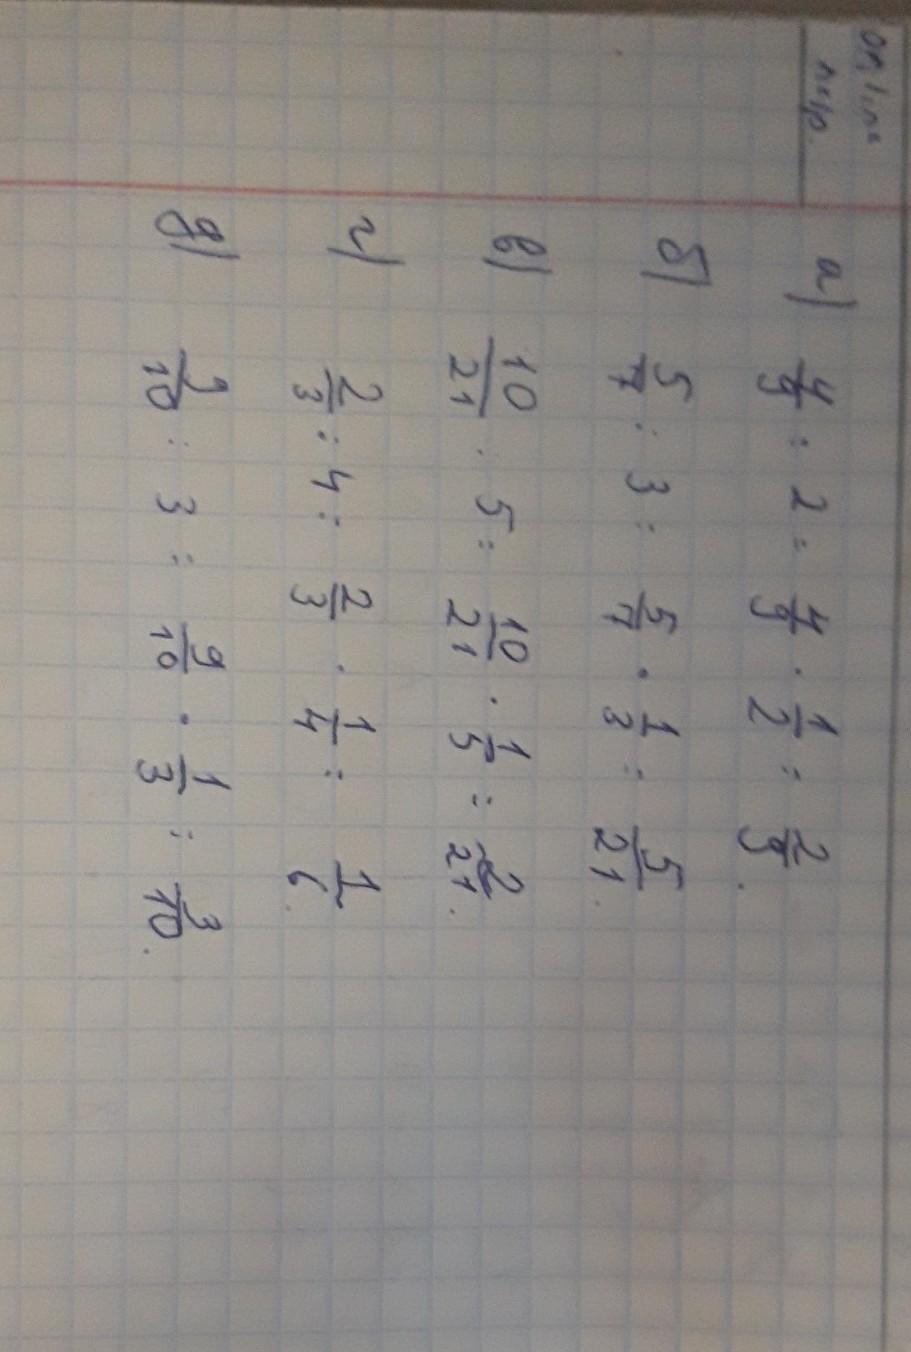 а) 4/9 : 2 = 4/9 · 1/2 = 2/9.
б) 5/7 : 3 = 5/7 · 1/3 = 5/21.
в) 10/21 : 5 = 10/21 · 1/5 = 2/21.
г) 2/3 : 4 = 2/3 · 1/4 = 1/6.
д) 9/10 : 3 = 9/10 · 1/3 = 3/10.